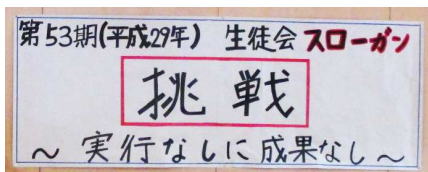 第53期(平成29年) 生徒会 スローガン
挑戦
～ 実行なしに成果なし ～